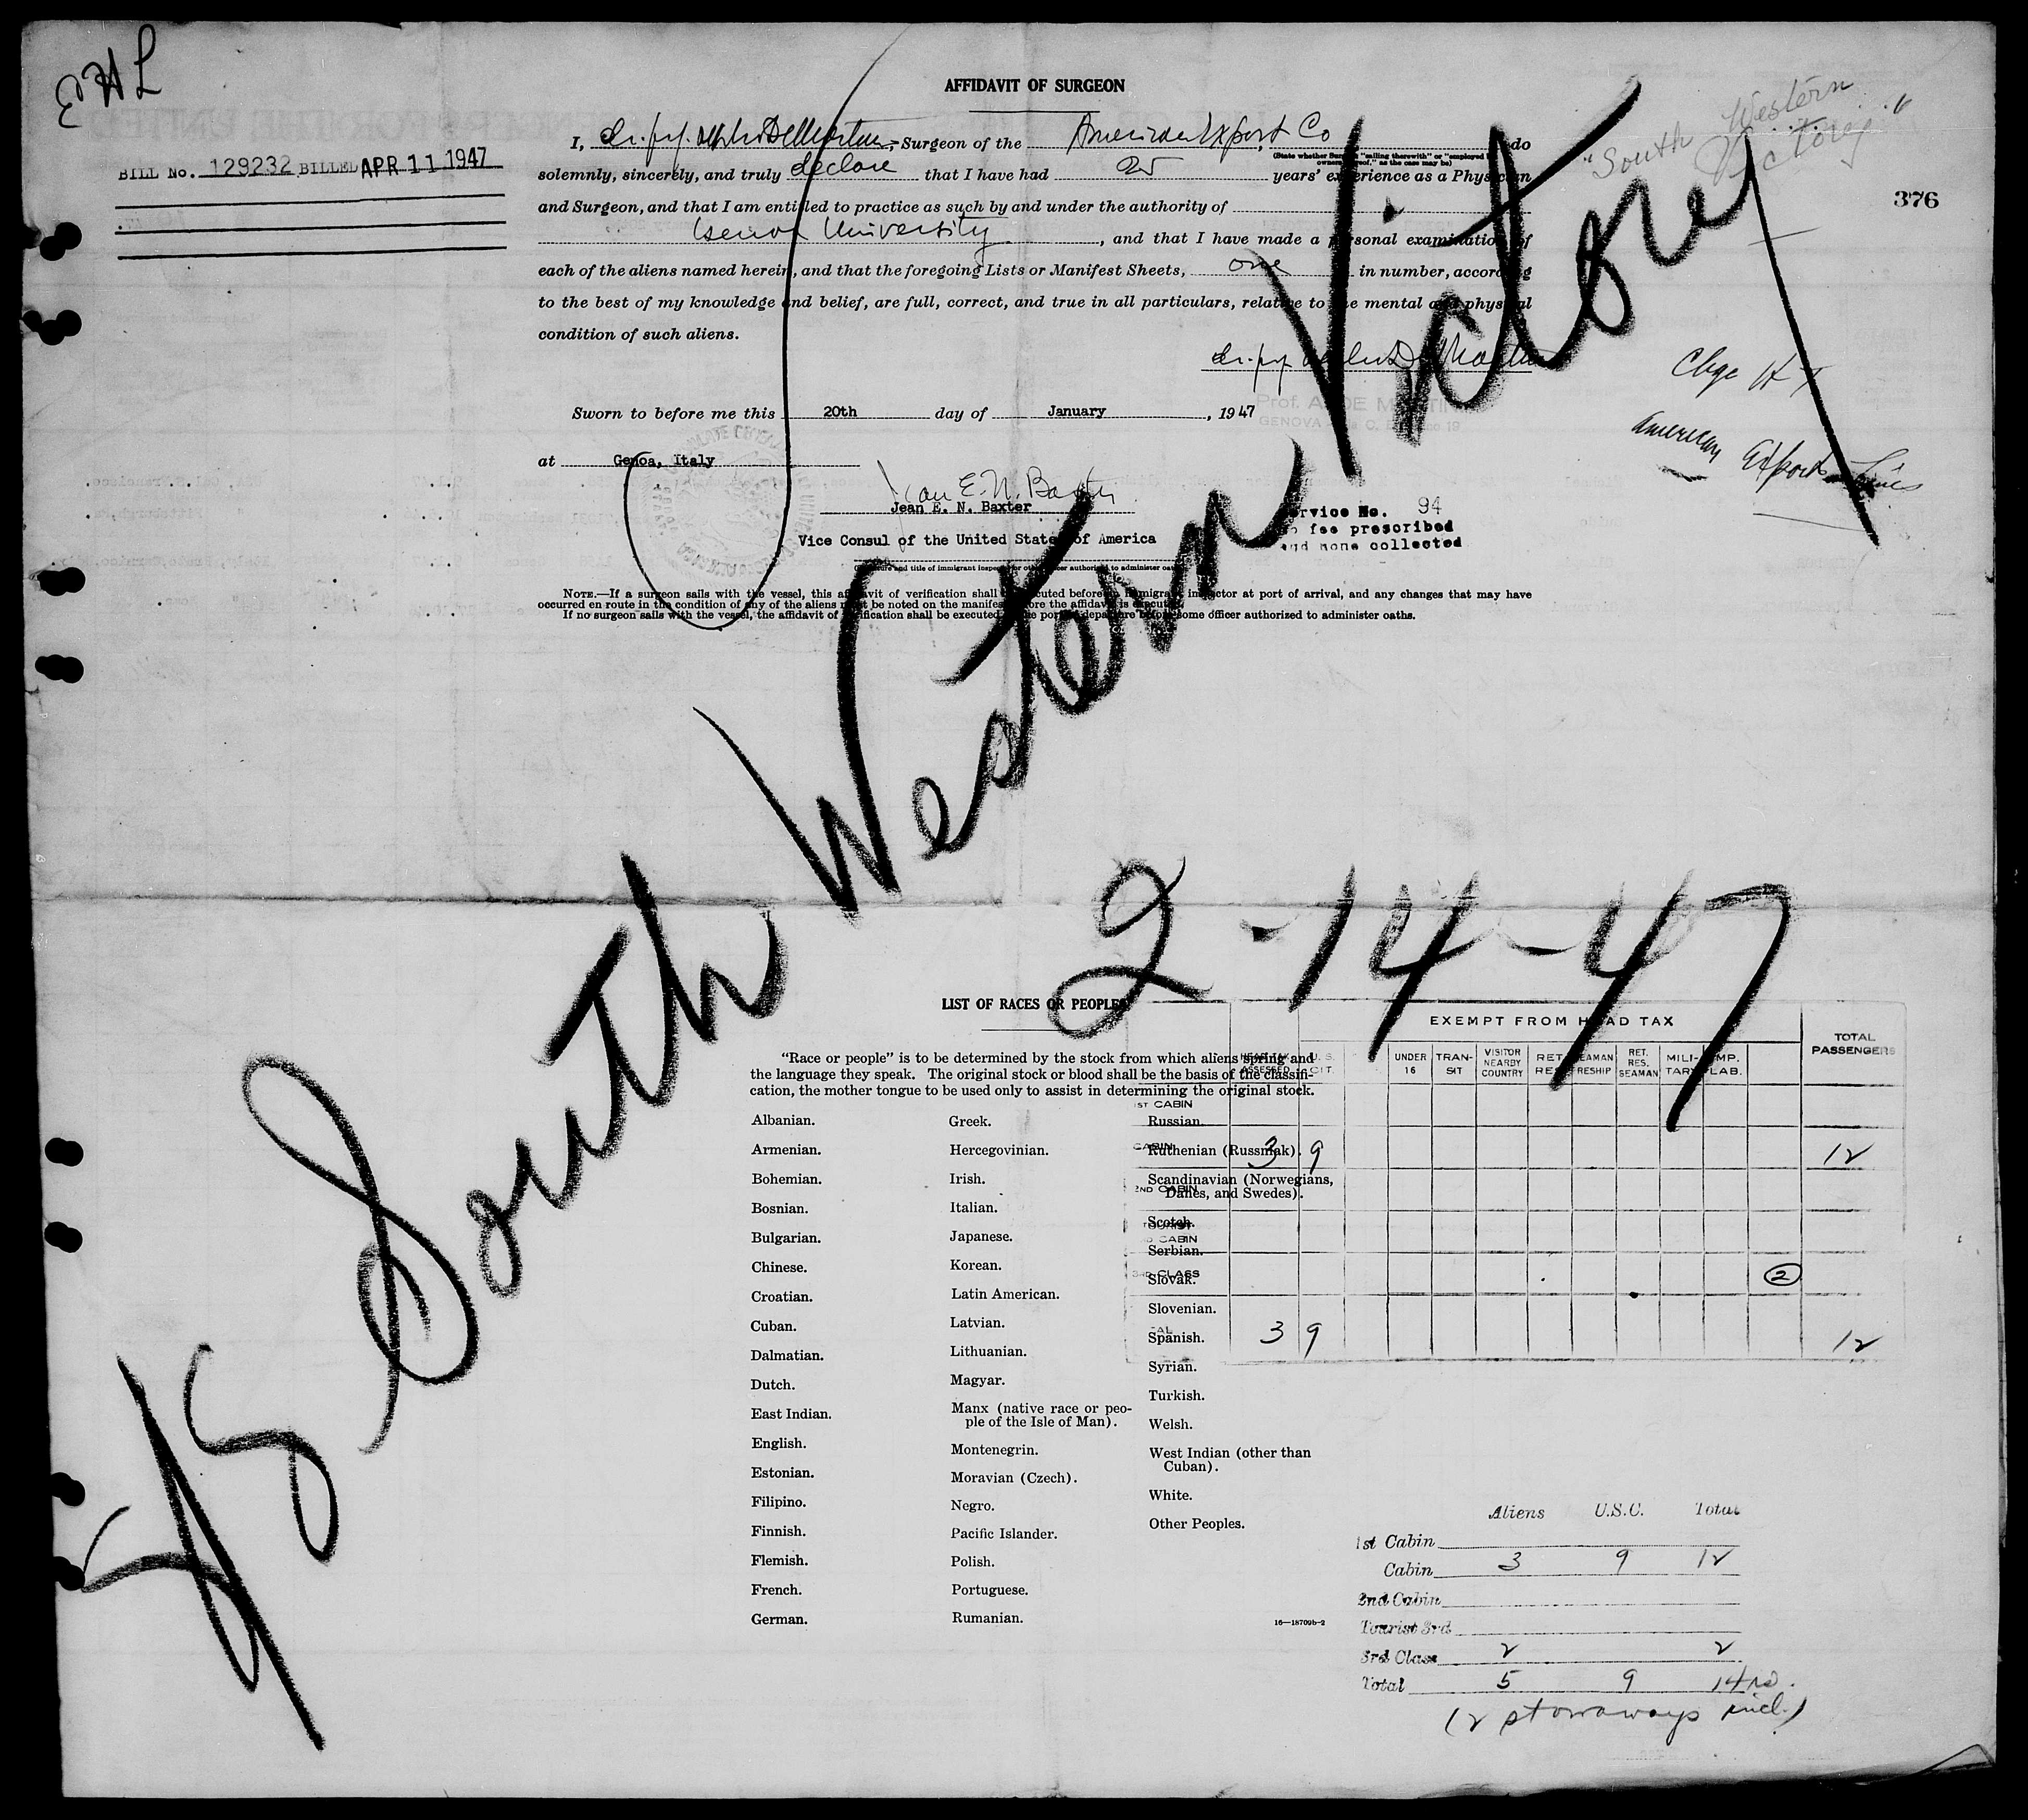 EHL
AFFIDAVIT OF SURGEON
"South Western Victory"
376
BILL No. 129232 BILLED APR 11 1947
I, Surgeon of the American Export Co do
(State whether Surgeon "sailing therewith" or "employed by owners thereof," as the case may be)
solemnly, sincerely, and truly declare that I have had 25 years' experience as a Physician
and Surgeon, and that I am entitled to practice as such by and under the authority of
Genoa University, and that I have made a personal examination of
each of the aliens named herein, and that the foregoing Lists or Manifest Sheets, one in number, according
to the best of my knowledge and belief, are full, correct, and true in all particulars, relative to the mental and physical
condition of such aliens.
Sworn to before me this 20th day of January, 1947
Prof. A. DE MARTINI
GENOVA
at Genoa, Italy
Jean E. N. Baxter
Jean E. N. Baxter
Vice Consul of the United States of America
Service No. 94
No fee prescribed
and none collected
Chge H T
American Export Lines
NOTE.—If a surgeon sails with the vessel, this affidavit of verification shall be executed before an immigrant inspector at port of arrival, and any changes that may have
occurred en route in the condition of any of the aliens must be noted on the manifest before the affidavit is executed.
If no surgeon sails with the vessel, the affidavit of verification shall be executed at the port of departure before some officer authorized to administer oaths.
SS South Western Victory
2-14-47
LIST OF RACES OR PEOPLES
"Race or people" is to be determined by the stock from which aliens spring and
the language they speak. The original stock or blood shall be the basis of the classifi-
cation, the mother tongue to be used only to assist in determining the original stock.
Albanian.
Armenian.
Bohemian.
Bosnian.
Bulgarian.
Chinese.
Croatian.
Cuban.
Dalmatian.
Dutch.
East Indian.
English.
Estonian.
Filipino.
Finnish.
Flemish.
French.
German.
Greek.
Hercegovinian.
Irish.
Italian.
Japanese.
Korean.
Latin American.
Latvian.
Lithuanian.
Magyar.
Manx (native race or peo-
ple of the Isle of Man).
Montenegrin.
Moravian (Czech).
Negro.
Pacific Islander.
Polish.
Portuguese.
Rumanian.
Russian.
Ruthenian (Russniak).
Scandinavian (Norwegians,
Danes, and Swedes).
Scotch.
Serbian.
Slovak.
Slovenian.
Spanish.
Syrian.
Turkish.
Welsh.
West Indian (other than
Cuban).
White.
Other Peoples.
16—18709b-2
EXEMPT FROM HEAD TAX
HEAD TAX ASSESSED U.S. CIT. UNDER 16 TRAN-SIT VISITOR NEARBY COUNTRY RET. RES. SEAMAN RESHIP RET. RES. SEAMAN MILI-TARY IMP. LAB. TOTAL PASSENGERS
1ST CABIN
CABIN 3 9 12
2ND CABIN
TOURIST
3D CABIN
3RD CLASS 2
3 9 12
Aliens U.S.C. Total
1st Cabin
Cabin 3 9 12
2nd Cabin
Tourist 3rd
3rd Class 2 2
Total 5 9 14
(2 stowaways incl.)